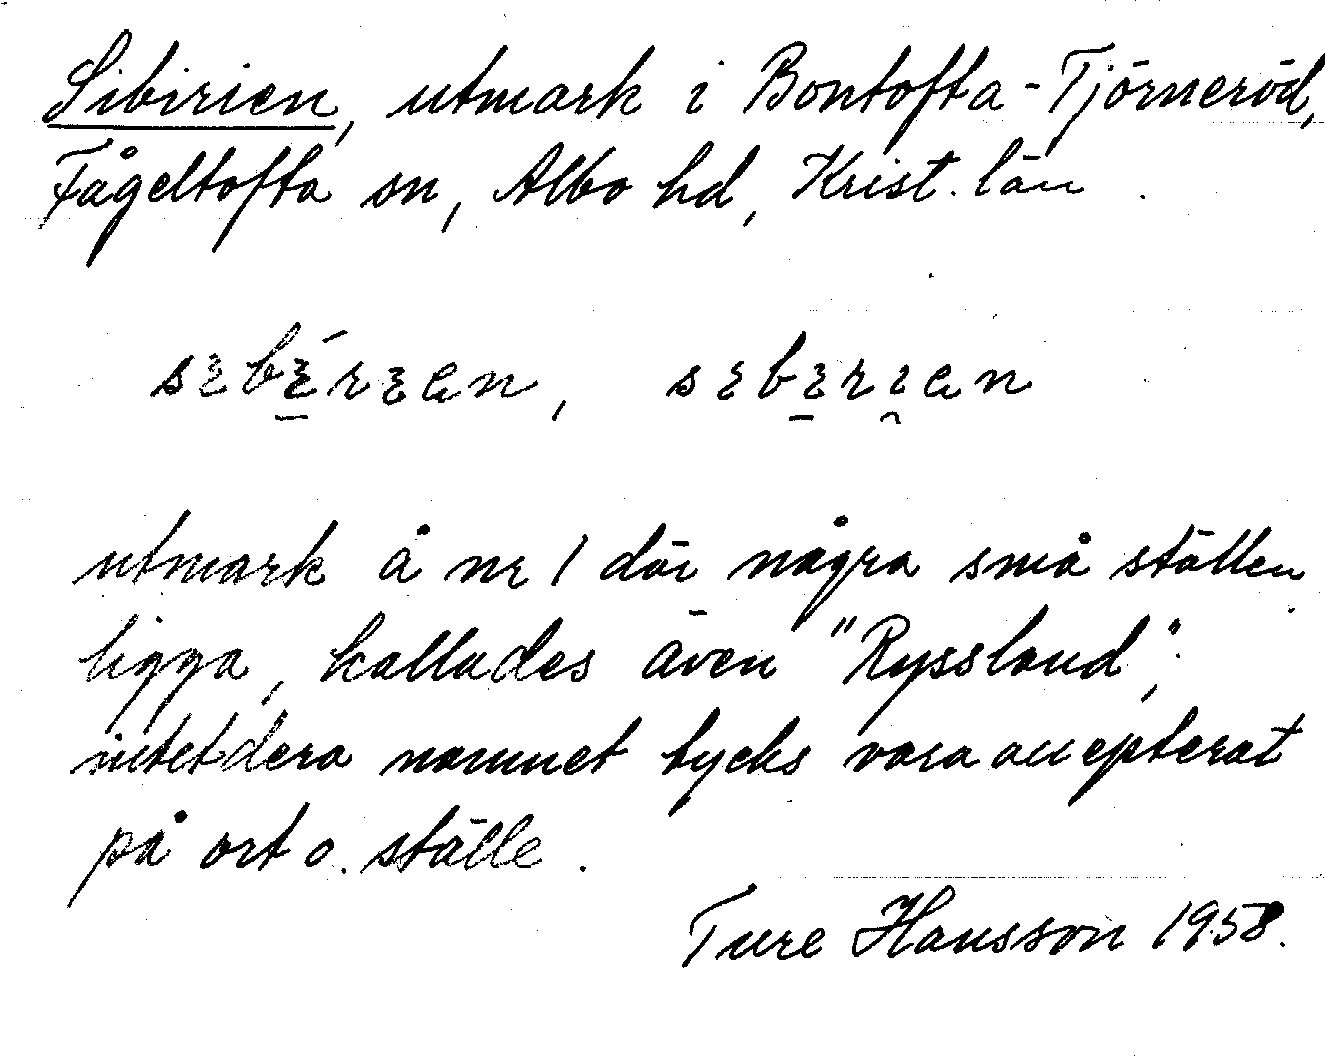 Sibirien, utmark i Bontofta-Tjörneröd,
Fågeltofta sn, Albo hd, Krist. län.
utmark å nr 1 där några små ställen
ligga, kallades även "Ryssland",
namnet tycks vara accepterat
på ort o. ställe.
Ture Hansson 1958.